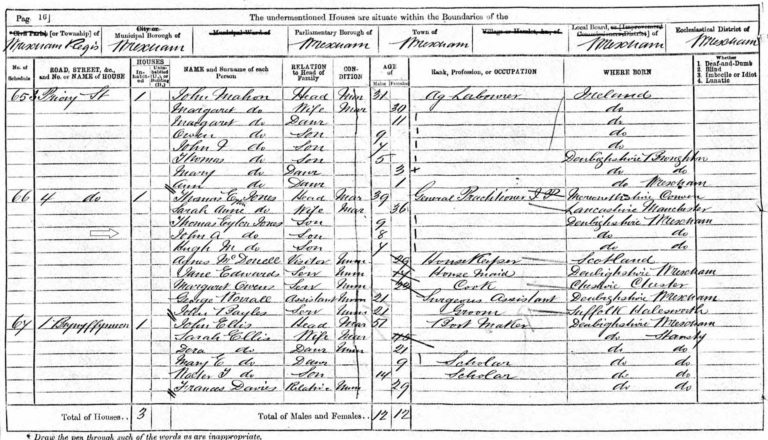 Page 16] The undermentioned Houses are situate within the Boundaries of the
Civil Parish [or Township] of City or Municipal Borough of Municipal Ward of Parliamentary Borough of Town of Village or Hamlet, &c., of Local Board, or [Improvement Commissioners District] of Ecclesiastical District of
Wrexham Regis Wrexham Wrexham Wrexham Wrexham Wrexham
No. of Schedule ROAD, STREET, &c., and No. or NAME of HOUSE HOUSES Inhabited NAME and Surname of each Person RELATION to Head of Family CONDITION AGE of Males Females Rank, Profession, or OCCUPATION WHERE BORN Whether 1 Deaf-and-Dumb 2 Blind 3 Imbecile or Idiot 4 Lunatic
65 3 Priory St 1 John Mahon Head 31 Ag Labourer Ireland
Margaret do Wife Mar 30 do
Margaret do Daur 11 do
Owen do Son 9 do
John P do Son 7 do
Thomas do Son 5 Denbighshire Broughton
Mary do Daur 3 do do
Ann do Daur 1 do Wrexham
66 4 do 1 Thomas E Jones Head Mar 39 General Practitioner
Sarah Anne do Wife Mar 36 Lancashire Manchester
Thomas Eyton Jones Son 9 Denbighshire Wrexham
John A do Son 8 do do
Hugh M do Son 7 do do
Agnes McDonell Visitor Unm 29 House Keeper Scotland
Jane Edwards Serv Unm House Maid Denbighshire Wrexham
Margaret Owens Serv Unm 22 Cook Cheshire Chester
George Assistant Unm 21 Surgeons Assistant Denbighshire Wrexham
John Serv Unm 21 Groom Suffolk Halesworth
67 1 1 John Ellis Head Mar 51 Denbighshire Wrexham
Sarah Ellis Wife Mar 45 do Stansty
Dora do Daur Unm 21 do do
Mary E do Daur 9 Scholar do do
Walter T do Son 14 Scholar do do
Frances Davies Relative Unm 29 do do
Total of Houses 3 Total of Males and Females 12 12
* Draw the pen through such of the words as are inappropriate.